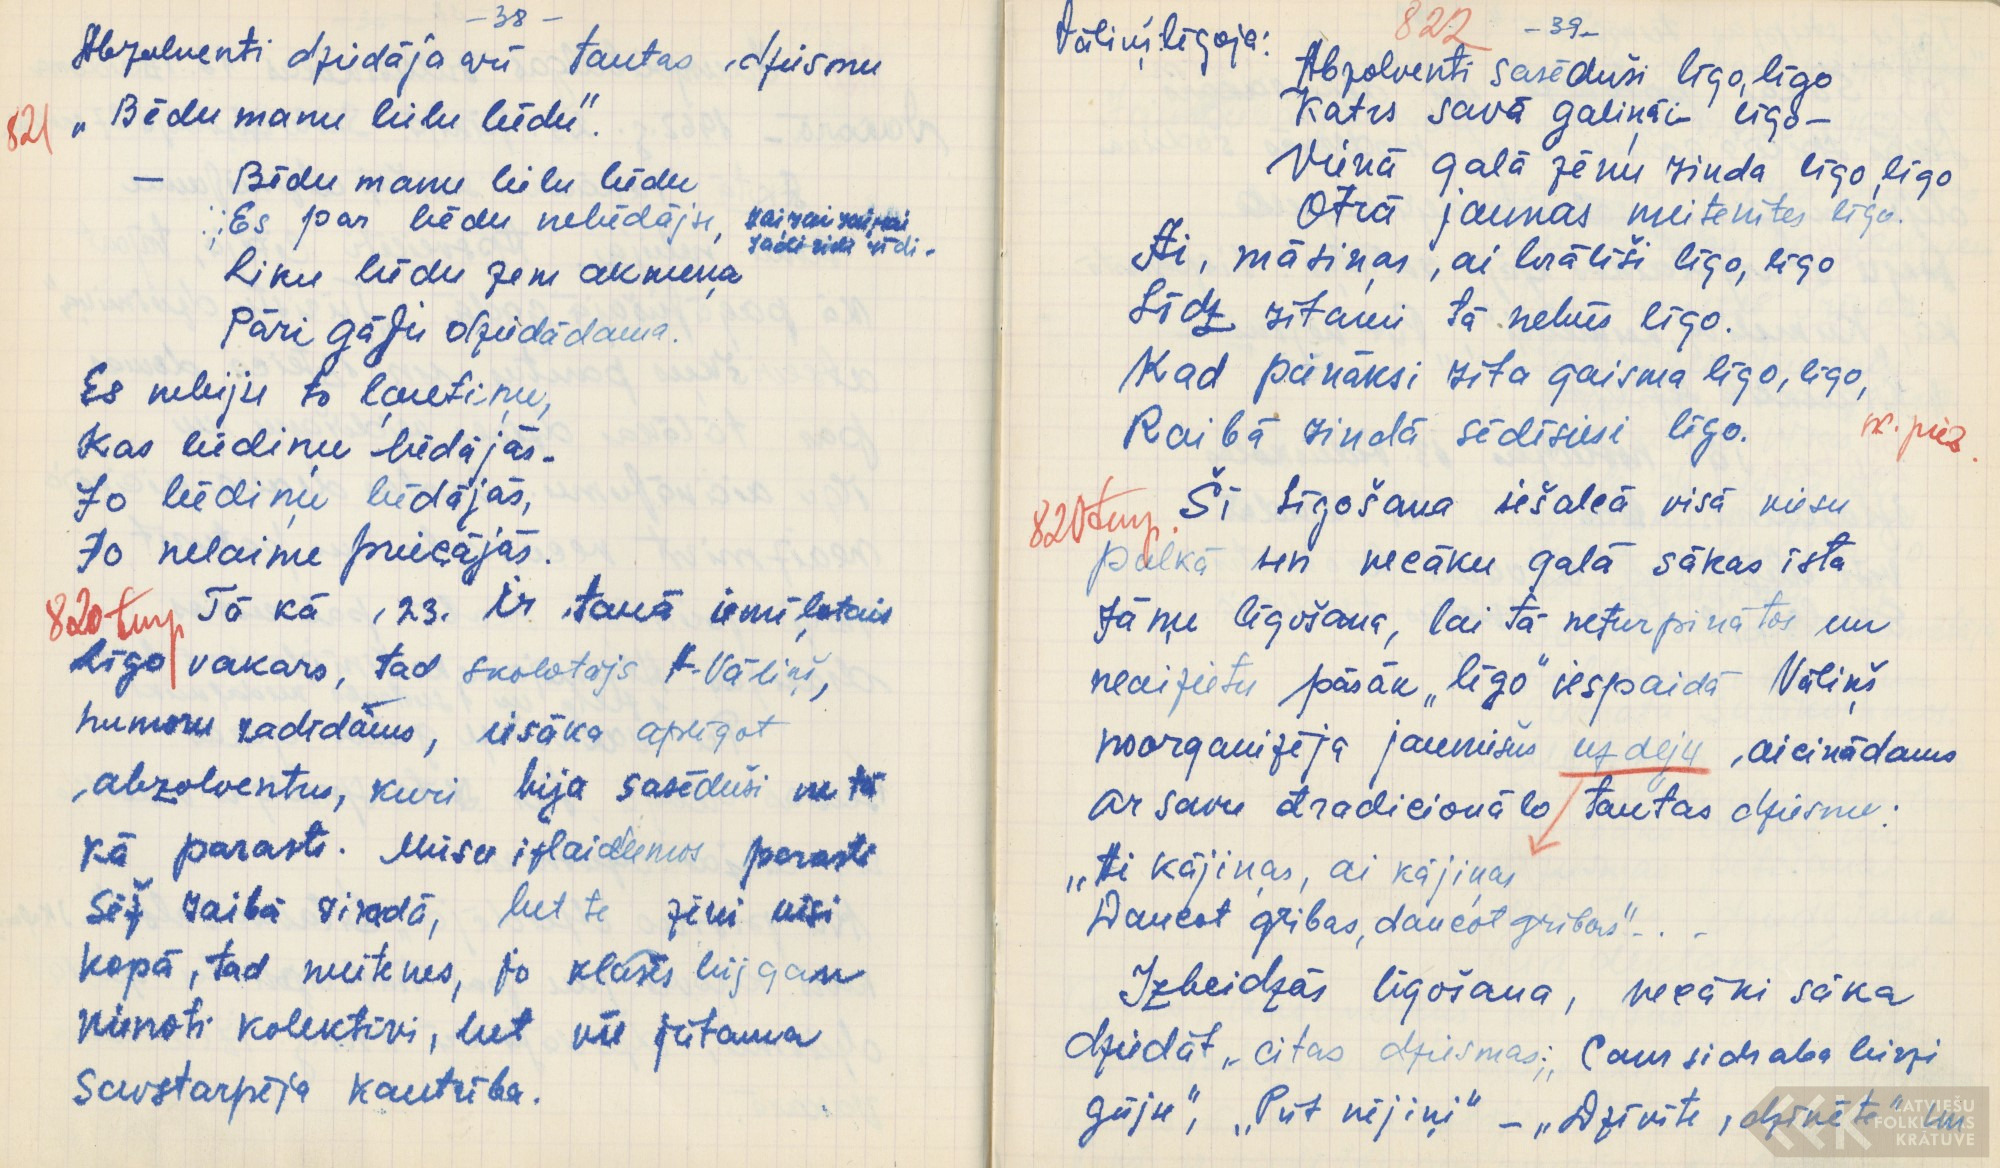 -38-
Abzolventi dziedāja arī tautas dziesmu
821 „Bēdu manu lielu bēdu".
— Bēdu manu lielu bēdu
Es par bēdu nebēdāju,
Liku bēdu zem akmeņa
Pāri gāju dziedādama.
Es nebiju to ļautiņu,
Kas bēdiņu bēdājās.
Jo bēdiņu bēdājās,
Jo nelaime priecājās.
820 turp. Tā kā 23. ir tautā iemīļotais
Līgo vakars, tad skolotājs A. Vāliņš,
humoru radīdams, iesāka aplīgot
abzolventus, kuri bija sasēduši ne tā
kā parasti. Mūsu izlaidumos parasti
sēž raibā rindā, bet te zēni visi
kopā, tad meitenes, jo klasēs bij gan
vienoti kolektīvi, bet vēl jūtama
savstarpēja kautrība.
822 -39-
Vāliņš līgoja:
Abzolventi sasēduši līgo, līgo
Katrs savā galiņāi līgo-
Vienā galā zēnu rinda līgo, līgo
Otrā jaunas meitenītes līgo.
Ai, māsiņas, ai brālīši līgo, līgo
Līdz rītami tā nebūs līgo.
Kad pienāksi rīta gaisma līgo, līgo,
Raibā rindā sēdīsiesi līgo.
sk. piez.
820 turp. Šī līgošana iešalcā visā viesu
pulkā un vecāku galā sākas īsta
Jāņu līgošana, lai tā neturpinātos un
neaizietu pāsāk „līgo" iespaidā Vāliņš
noorganizēja jauniešus uz deju, aicinādams
ar savu tradicionālo tautas dziesmu:
„Ai kājiņas, ai kājiņas
Dancot gribas, dancot gribas"- . -
Izbeidzās līgošana, vecāki sāka
dziedāt citas dziesmas: „Caur sidraba birzi
gāju", „Pūt vējiņi" – „Dzīvīte, dzīvīte" un
LATVIEŠU
FOLKLORAS
KRĀTUVE